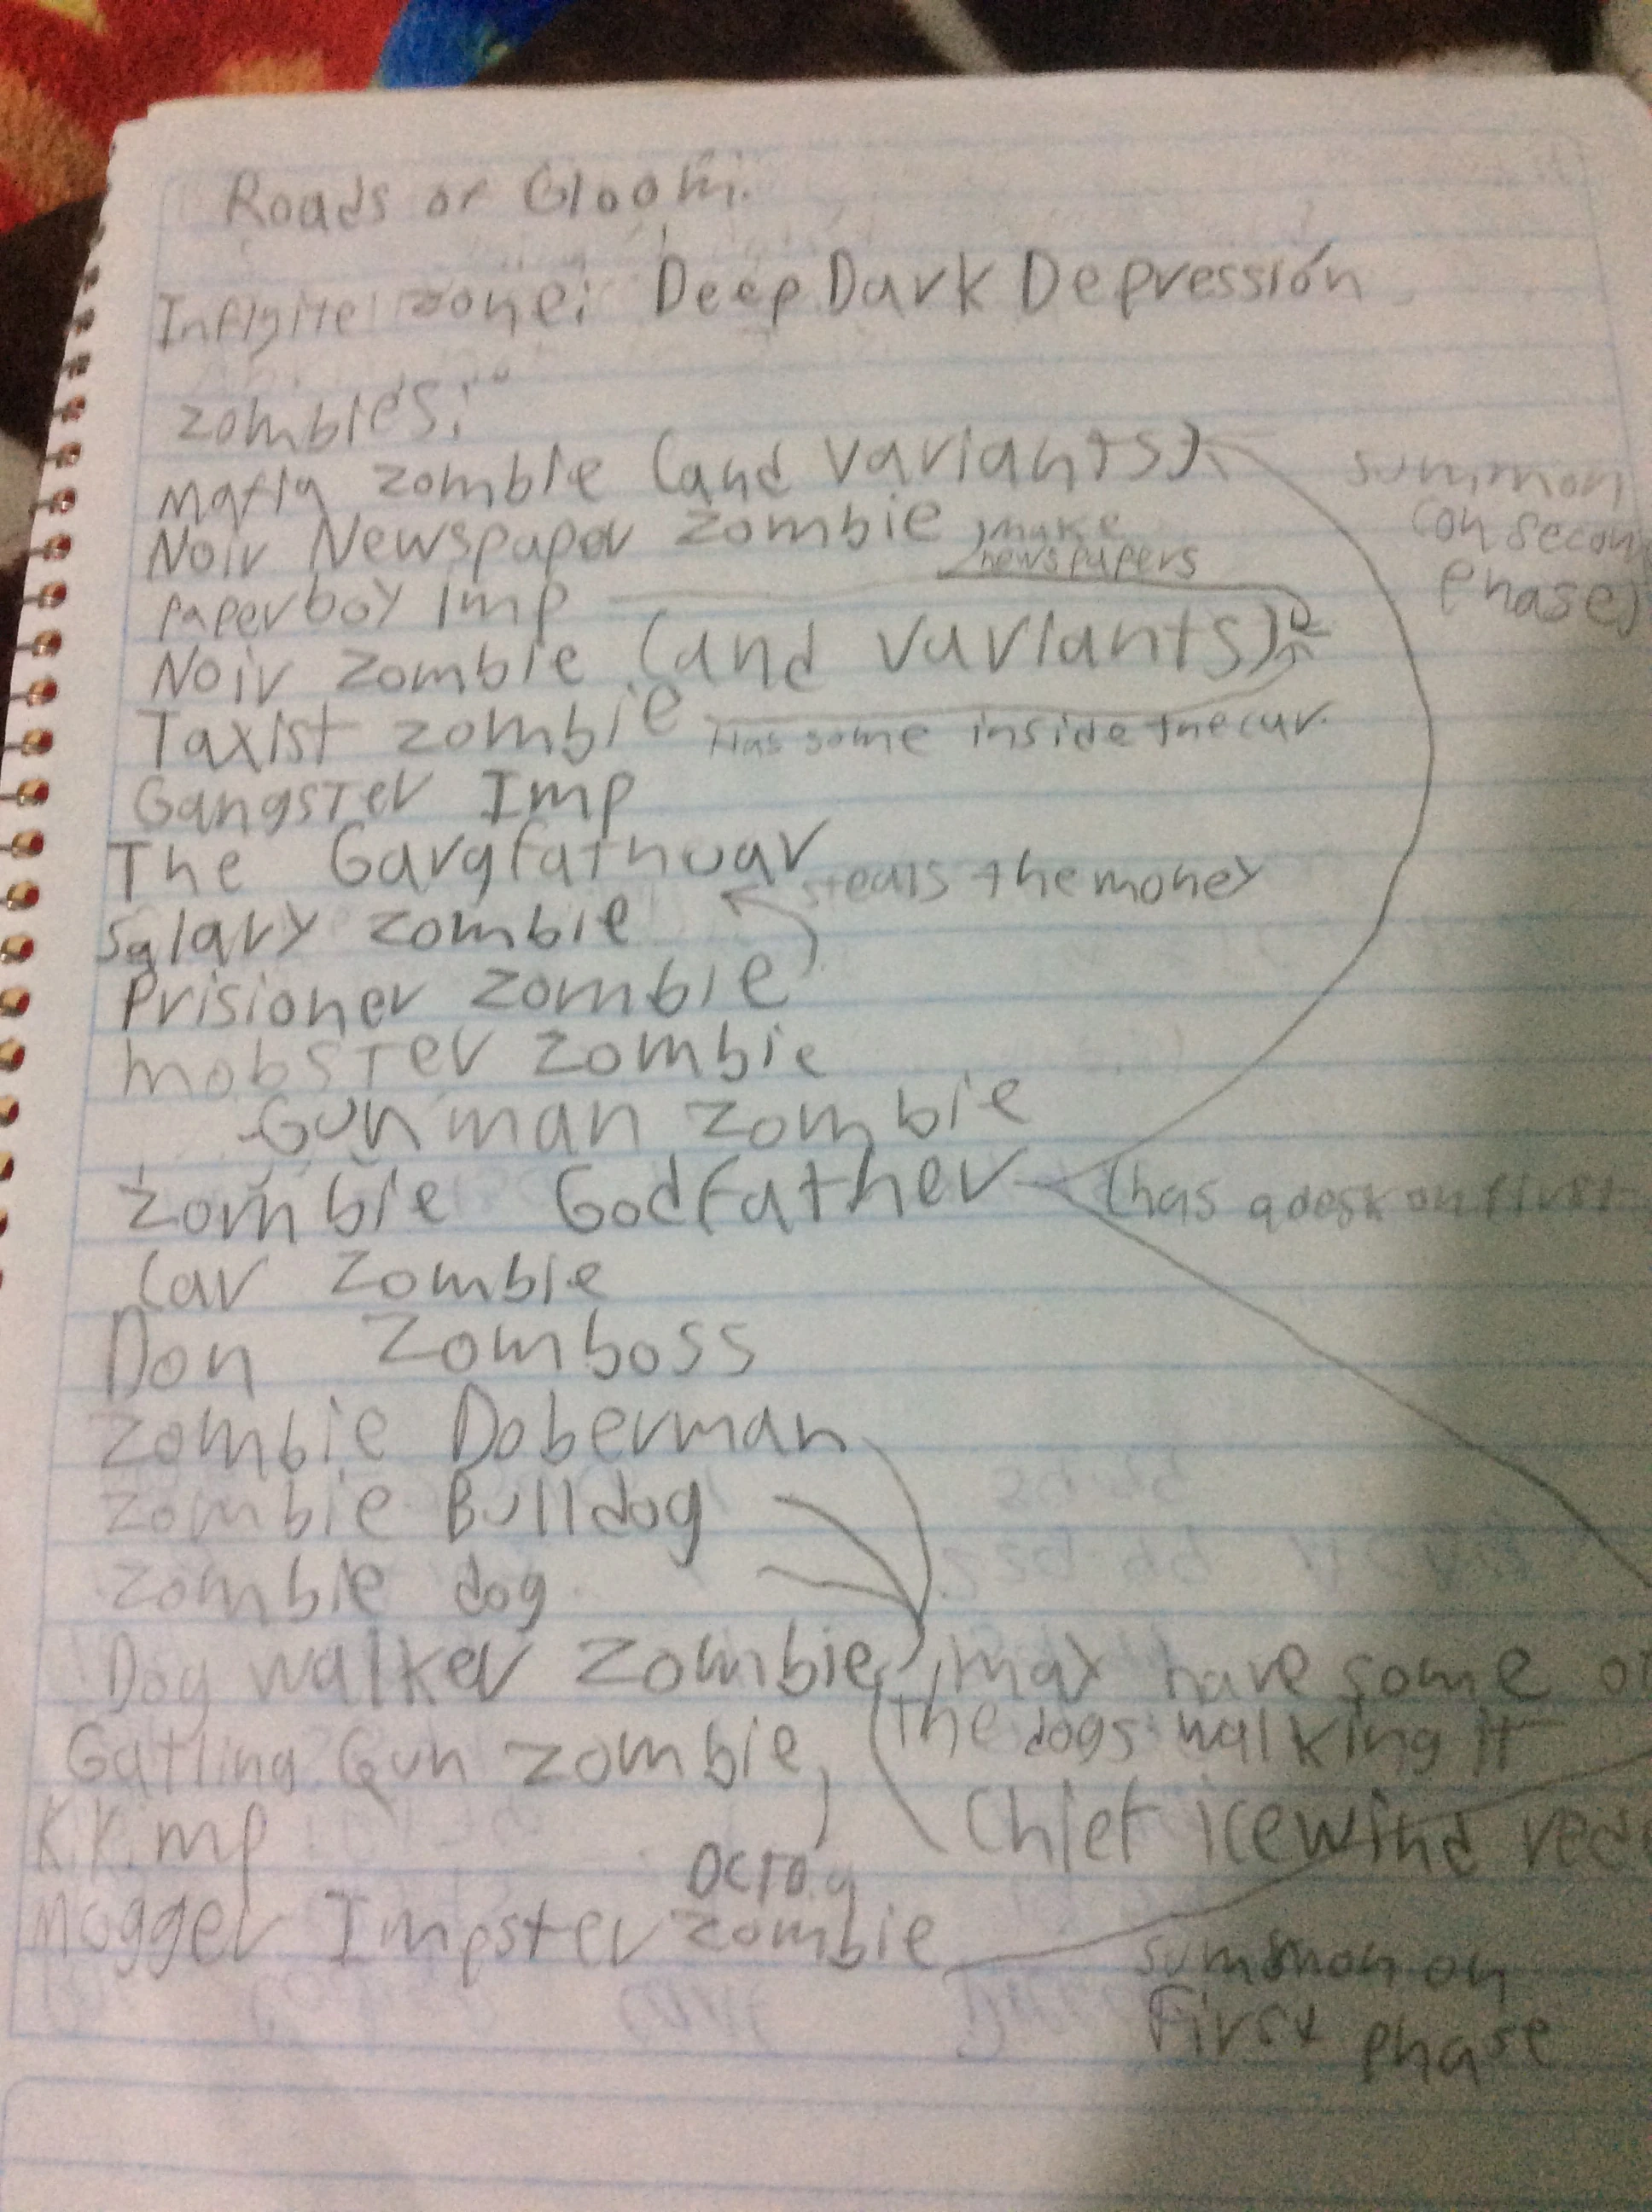 Roads of Gloom:
Infinite zone: Deep Dark Depressión
Zombies:
Mafia zombie (and variants)
summon
(on second
Phase)
Noir Newspaper Zombie
make
newspapers
Paperboy Imp
Noir zombie (and variants)
Taxist zombie
Has some inside the car.
Gangster Imp
The Gargfathuar
steals the money
Salary zombie
Prisioner zombie
mobster zombie
Gun man zombie
Zombie Godfather
(has a desk on first
Car Zombie
Don Zomboss
Zombie Doberman
Zombie Bulldog
Zombie dog
Dog walker Zombie, may have some of
the dogs walking it
Gatling Gun zombie
Chief icewind
K.K. imp
Octo
Mogger Impster zombie
summon on
First phase